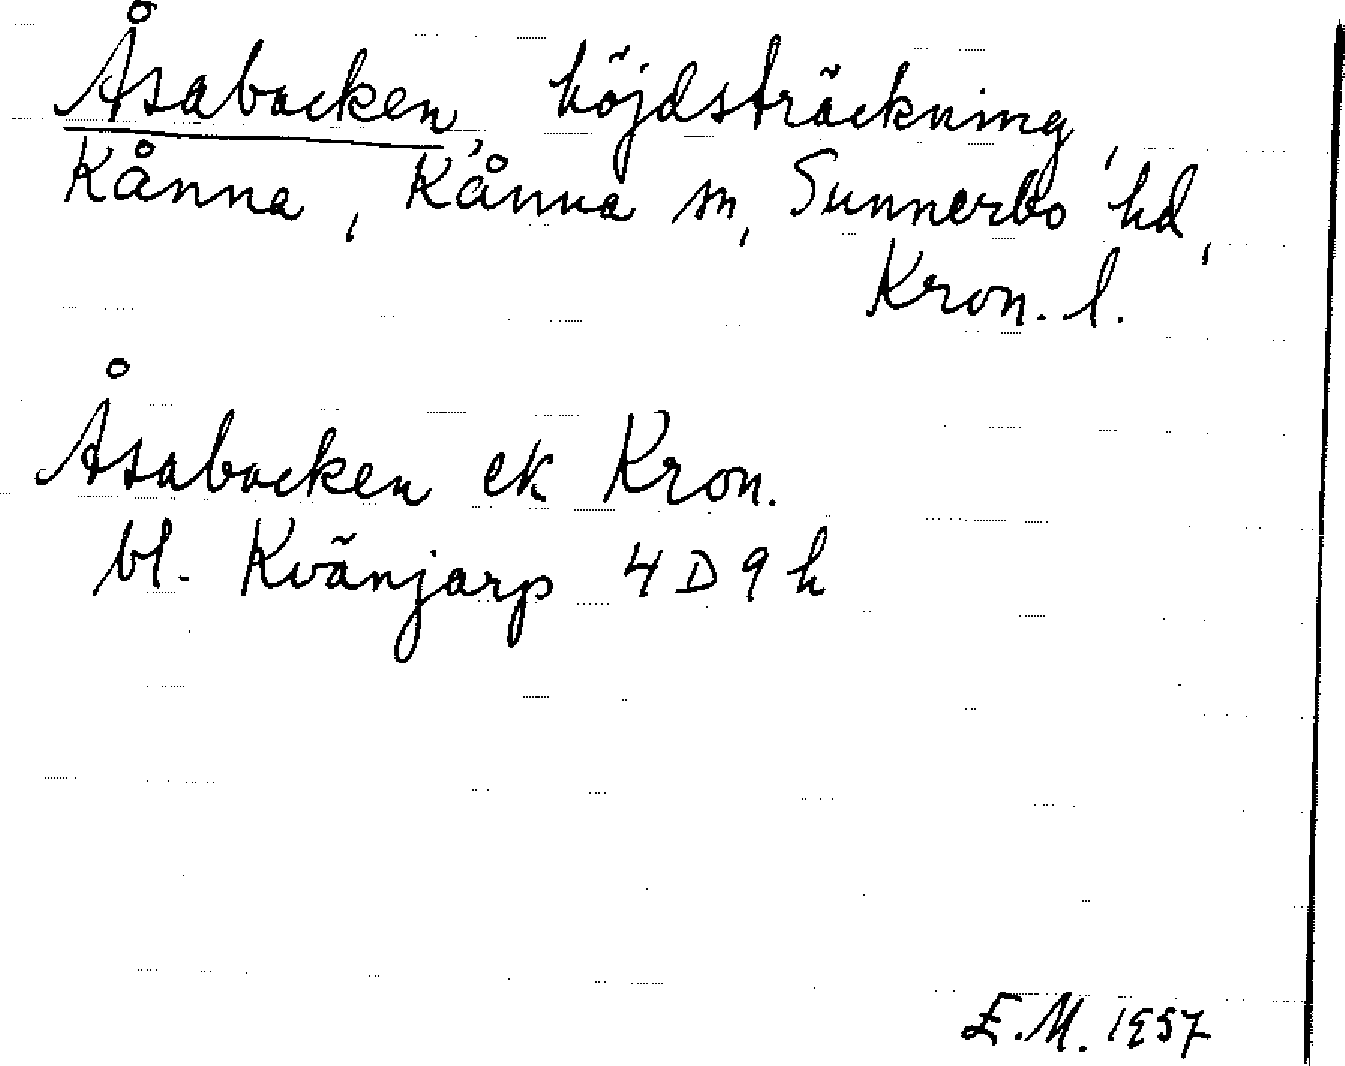 Åsabacken, höjdsträckning,
Kånna, Kånna sn, Sunnerbo hd,
Kron. l.
Åsabacken ek Kron.
bl. Kvänjarp 4D9h
E.M. 1957